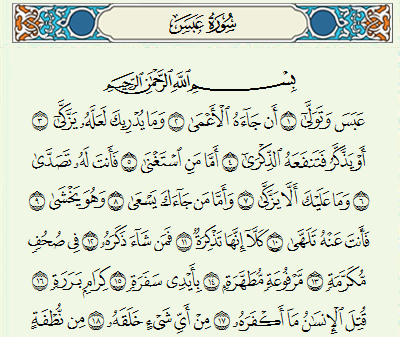 سُورَةُ عَبَسَ
بِسْمِ اللَّهِ الرَّحْمَٰنِ الرَّحِيمِ
عَبَسَ وَتَوَلَّىٰٓ ١ أَن جَآءَهُ ٱلْأَعْمَىٰ ٢ وَمَا يُدْرِيكَ لَعَلَّهُۥ يَزَّكَّىٰٓ ٣
أَوْ يَذَّكَّرُ فَتَنفَعَهُ ٱلذِّكْرَىٰٓ ٤ أَمَّا مَنِ ٱسْتَغْنَىٰ ٥ فَأَنتَ لَهُۥ تَصَدَّىٰ
٦ وَمَا عَلَيْكَ أَلَّا يَزَّكَّىٰ ٧ وَأَمَّا مَن جَآءَكَ يَسْعَىٰ ٨ وَهُوَ يَخْشَىٰ ٩
فَأَنتَ عَنْهُ تَلَهَّىٰ ١٠ كَلَّآ إِنَّهَا تَذْكِرَةٌ ١١ فَمَن شَآءَ ذَكَرَهُۥ ١٢ فِى صُحُفٍ
مُّكَرَّمَةٍ ١٣ مَّرْفُوعَةٍ مُّطَهَّرَةٍۭ ١٤ بِأَيْدِى سَفَرَةٍ ١٥ كِرَامٍۭ بَرَرَةٍ ١٦
قُتِلَ ٱلْإِنسَٰنُ مَآ أَكْفَرَهُۥ ١٧ مِنْ أَىِّ شَىْءٍ خَلَقَهُۥ ١٨ مِن نُّطْفَةٍ